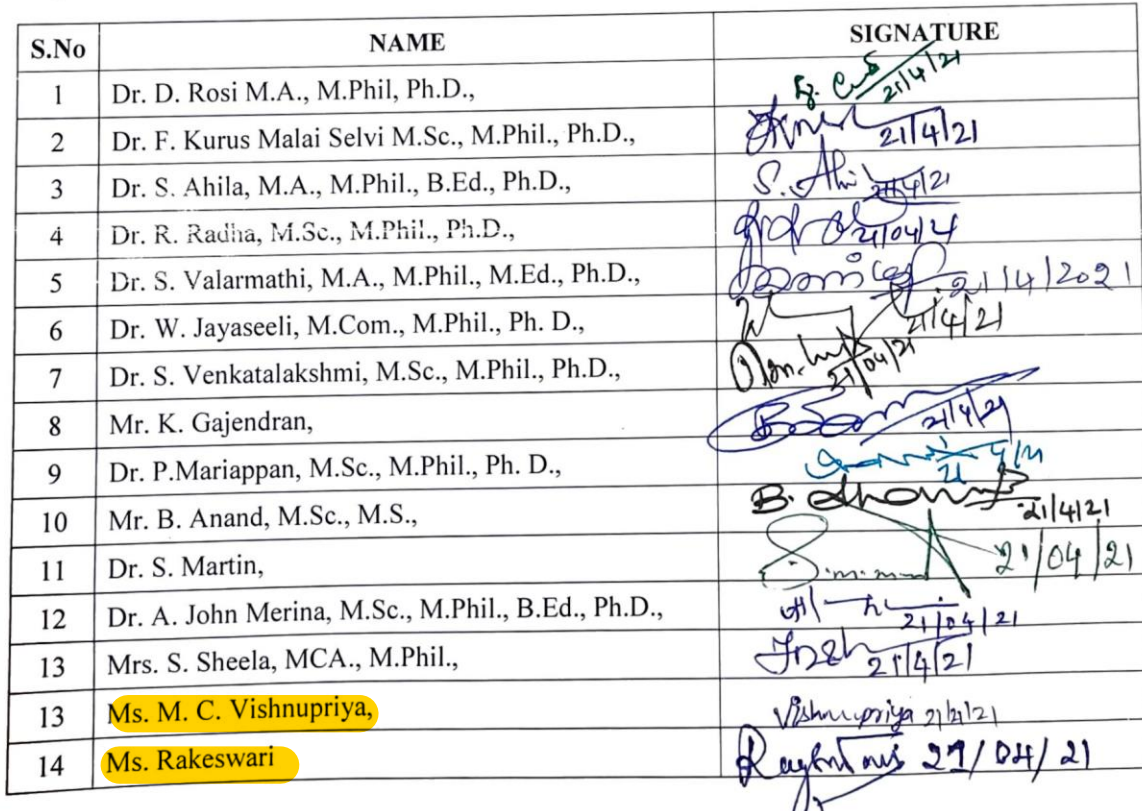 S.No NAME SIGNATURE
1 Dr. D. Rosi M.A., M.Phil, Ph.D., 21/4/21
2 Dr. F. Kurus Malai Selvi M.Sc., M.Phil., Ph.D., 21/4/21
3 Dr. S. Ahila, M.A., M.Phil., B.Ed., Ph.D., S. Ahil 21/4/21
4 Dr. R. Radha, M.Sc., M.Phil., Ph.D., 21/04/21
5 Dr. S. Valarmathi, M.A., M.Phil., M.Ed., Ph.D., 21/4/2021
6 Dr. W. Jayaseeli, M.Com., M.Phil., Ph. D., 21/4/21
7 Dr. S. Venkatalakshmi, M.Sc., M.Phil., Ph.D., 21/04/21
8 Mr. K. Gajendran, 21/4/21
9 Dr. P.Mariappan, M.Sc., M.Phil., Ph. D., 21 4/21
10 Mr. B. Anand, M.Sc., M.S., B. 21/4/21
11 Dr. S. Martin, 21/04/21
12 Dr. A. John Merina, M.Sc., M.Phil., B.Ed., Ph.D., 21/04/21
13 Mrs. S. Sheela, MCA., M.Phil., 21/4/21
13 Ms. M. C. Vishnupriya, Vishnupriya 21/4/21
14 Ms. Rakeswari 21/04/21